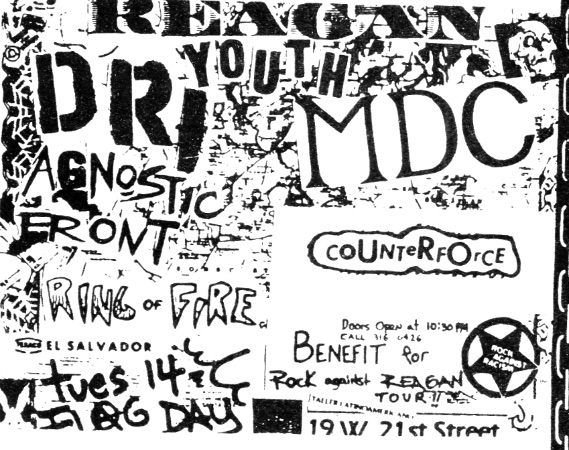 REAGAN
YOUTH
DRI
MDC
AGNOSTIC
FRONT
COUNTERFORCE
RING OF FIRE
Doors Open at 10:30 PM
CALL 316 0426
BENEFIT for
ROCK against REAGAN
TOUR!!
ROCK
AGAINST
RACISM
EL SALVADOR
tues 14
FLAG DAY
19 W 21st Street